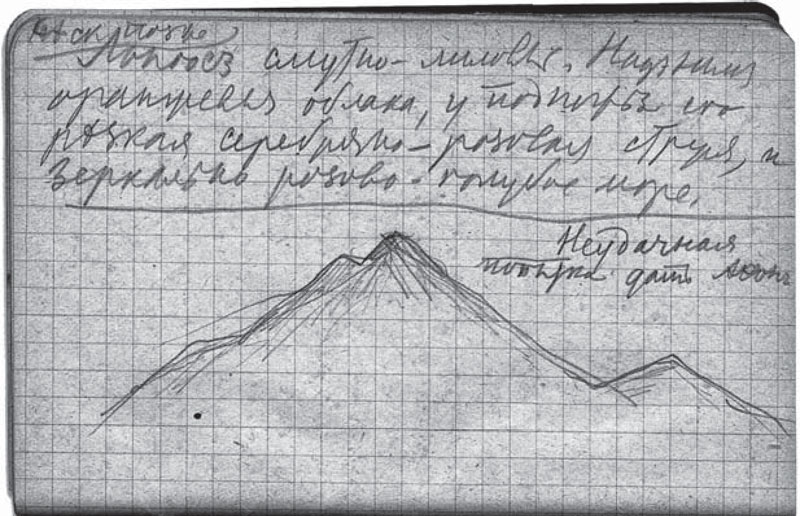 Нѣск. позже
смутно-лиловый. Надъ нимъ
оранжевыя облака, у подножья его
рѣзкая серебряно-розовая струя, и
зеркально розово-голубое море.
Неудачная
попытка дать Аѳонъ